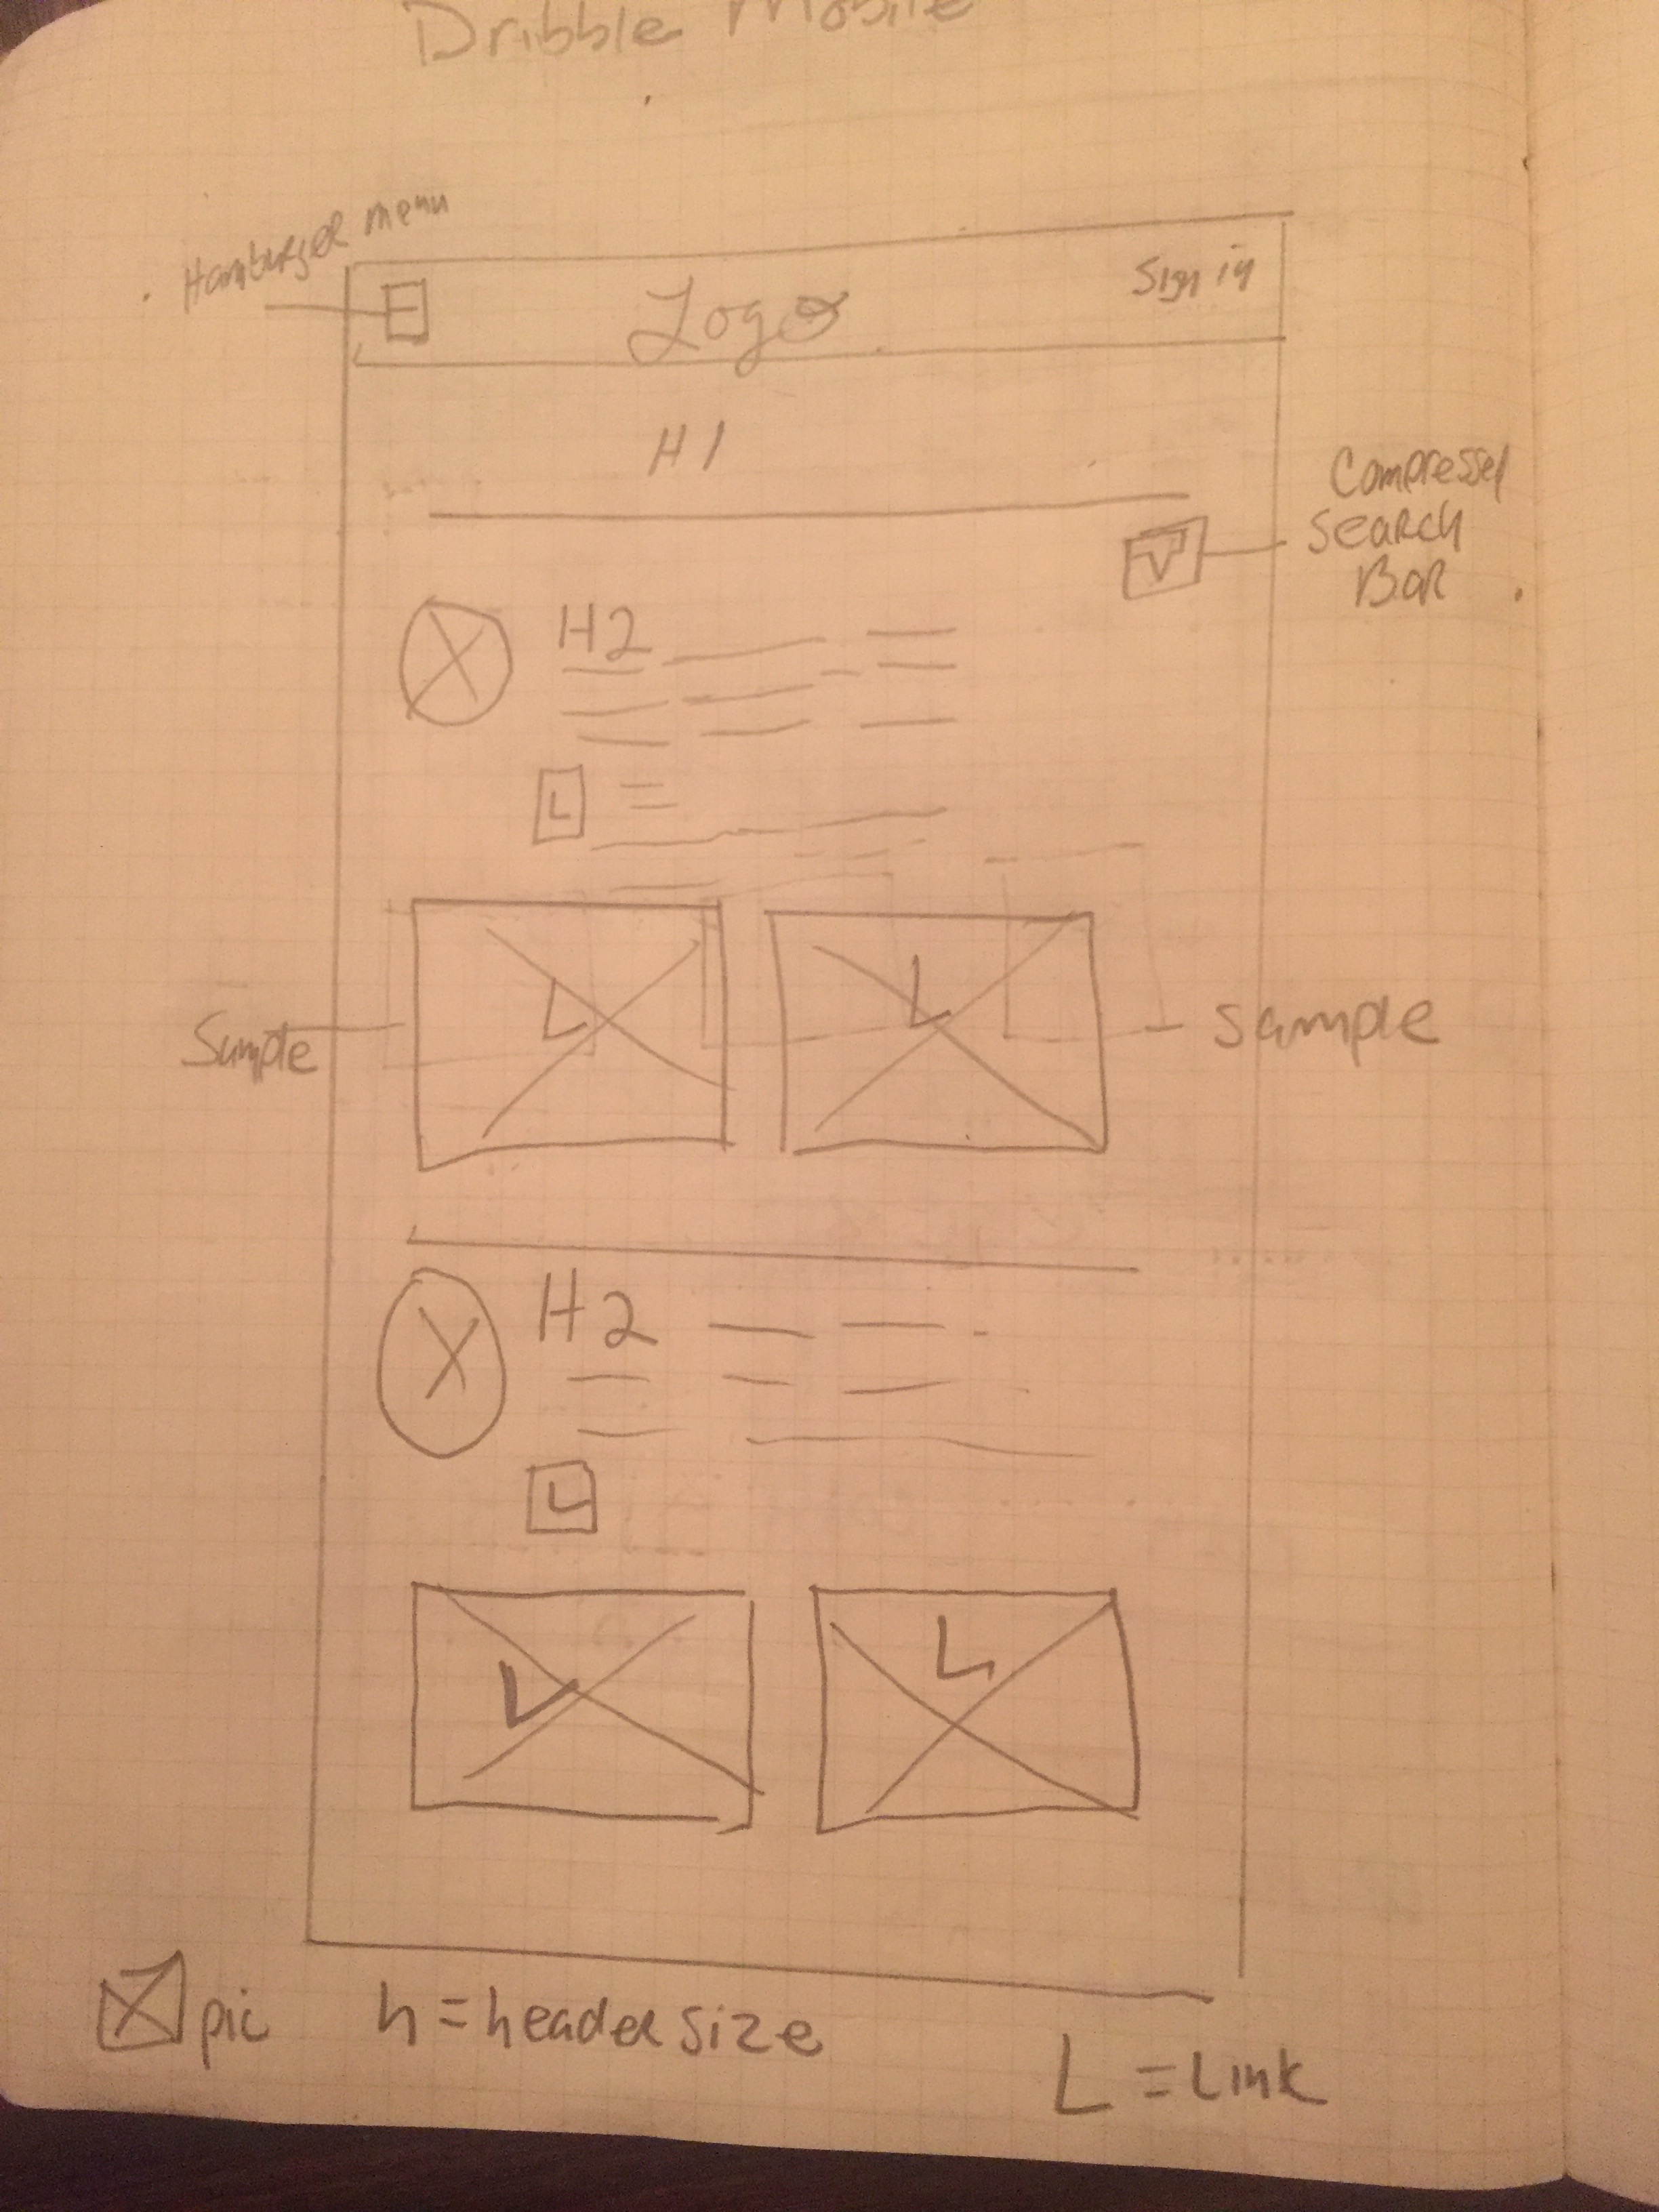 Dribble Mobile
Hamburger menu
Logo
Sign in
H1
Compressed
Search
Bar
V
H2
L
L
L
Sample
Sample
H2
L
L
L
pic
h = header size
L = Link